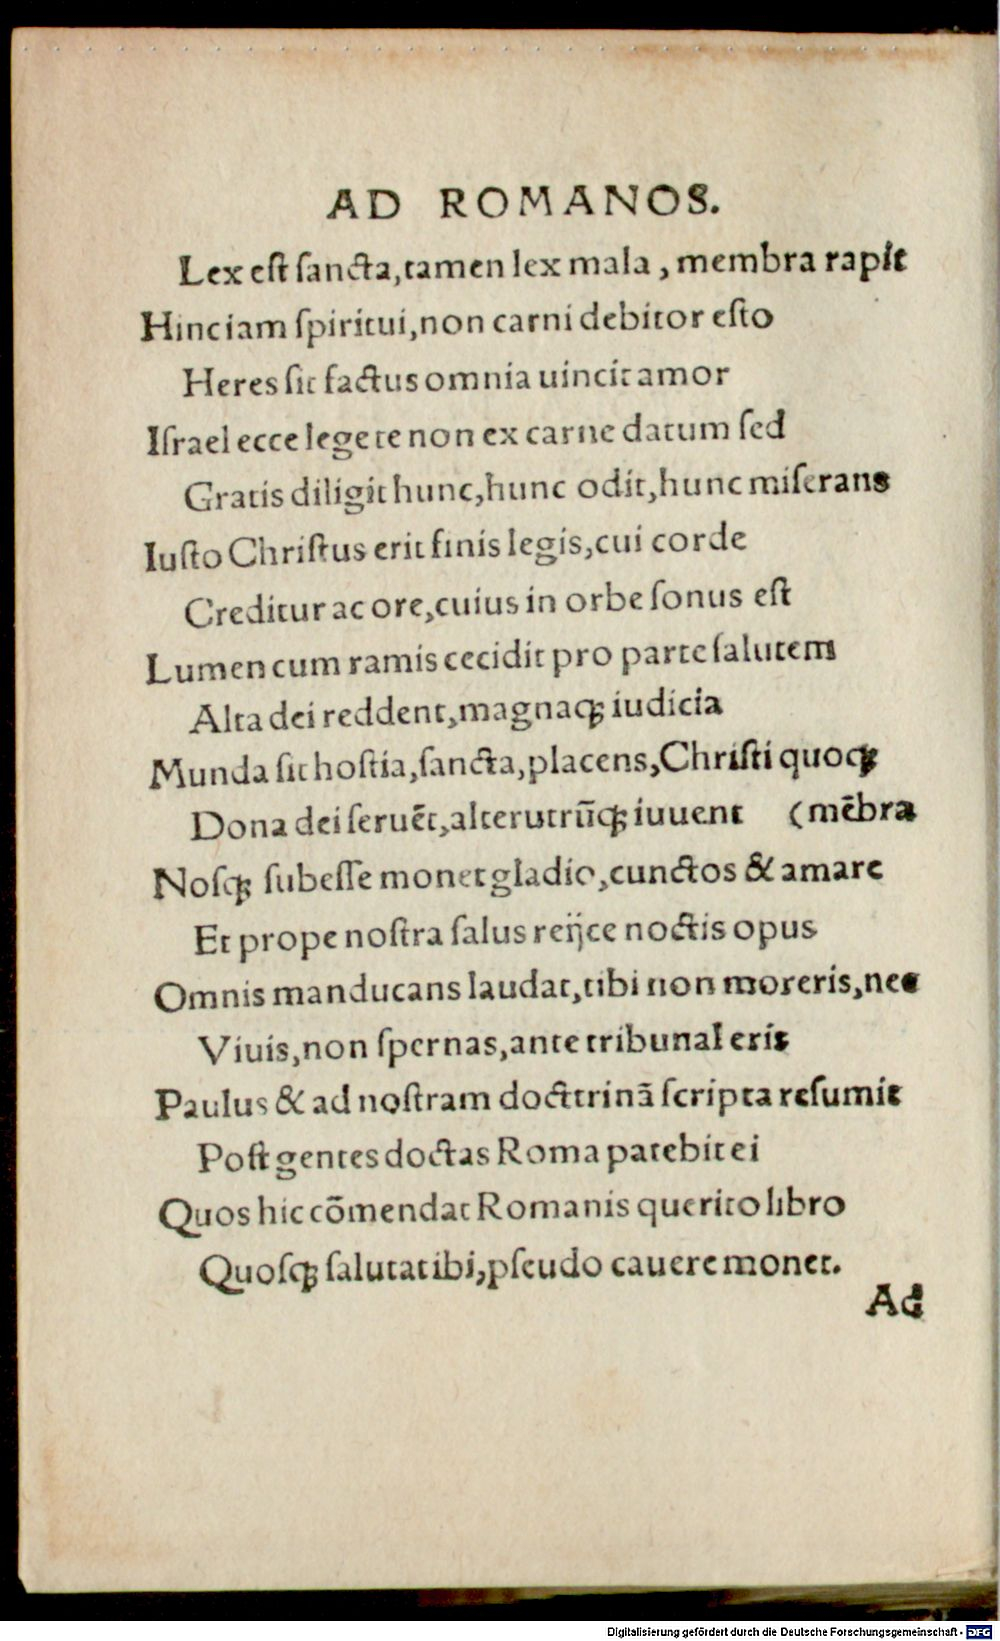 AD ROMANOS.
Lex eſt ſancta, tamen lex mala, membra rapit
Hinc iam ſpiritui, non carni debitor eſto
Heres ſit factus omnia uincit amor
Iſrael ecce lege te non ex carne datum ſed
Gratis diligit hunc, hunc odit, hunc miſerans
Iuſto Chriſtus erit finis legis, cui corde
Creditur ac ore, cuius in orbe ſonus eſt
Lumen cum ramis cecidit pro parte ſalutem
Alta dei reddent, magnaqꝫ iudicia
Munda ſit hoſtia, ſancta, placens, Chriſti quoqꝫ
Dona dei ſeruēt, alterutrūqꝫ iuuent (mēbra
Noſqꝫ ſubeſſe monet gladio, cunctos & amare
Et prope noſtra ſalus reijce noctis opus
Omnis manducans laudat, tibi non moreris, nec
Viuis, non ſpernas, ante tribunal eris
Paulus & ad noſtram docttrinā ſcripta reſumit
Poſt gentes doctas Roma patebit ei
Quos hic cōmendat Romanis querito libro
Quoſqꝫ ſalutat ibi, pſeudo cauere monet.
Ad
Digitalisierung gefördert durch die Deutsche Forschungsgemeinschaft - DFG